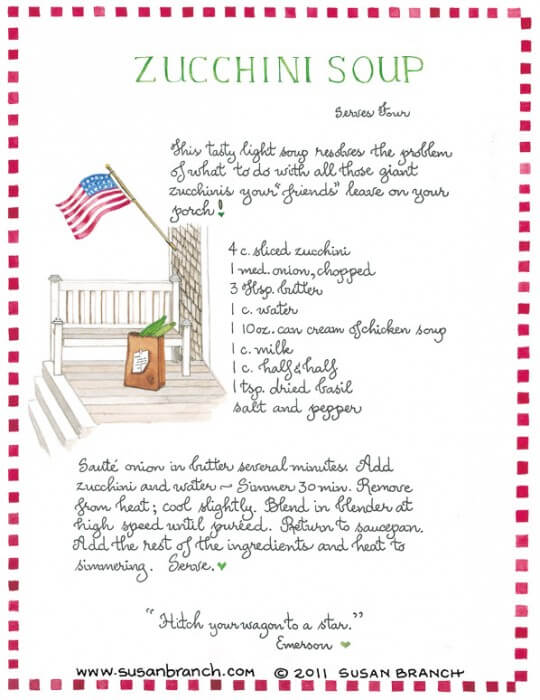 ZUCCHINI SOUP
Serves Four
This tasty light soup resolves the problem
of what to do with all those giant
zucchinis your "friends" leave on your
porch!
4 c. sliced zucchini
1 med. onion, chopped
3 Tbsp. butter
1 c. water
1 10 oz. can cream of chicken soup
1 c. milk
1 c. half & half
1 tsp. dried basil
salt and pepper
Sauté onion in butter several minutes. Add
zucchini and water ~ Simmer 30 min. Remove
from heat; cool slightly. Blend in blender at
high speed until puréed. Return to saucepan.
Add the rest of the ingredients and heat to
simmering. Serve.
"Hitch your wagon to a star."
Emerson
www.susanbranch.com © 2011 SUSAN BRANCH